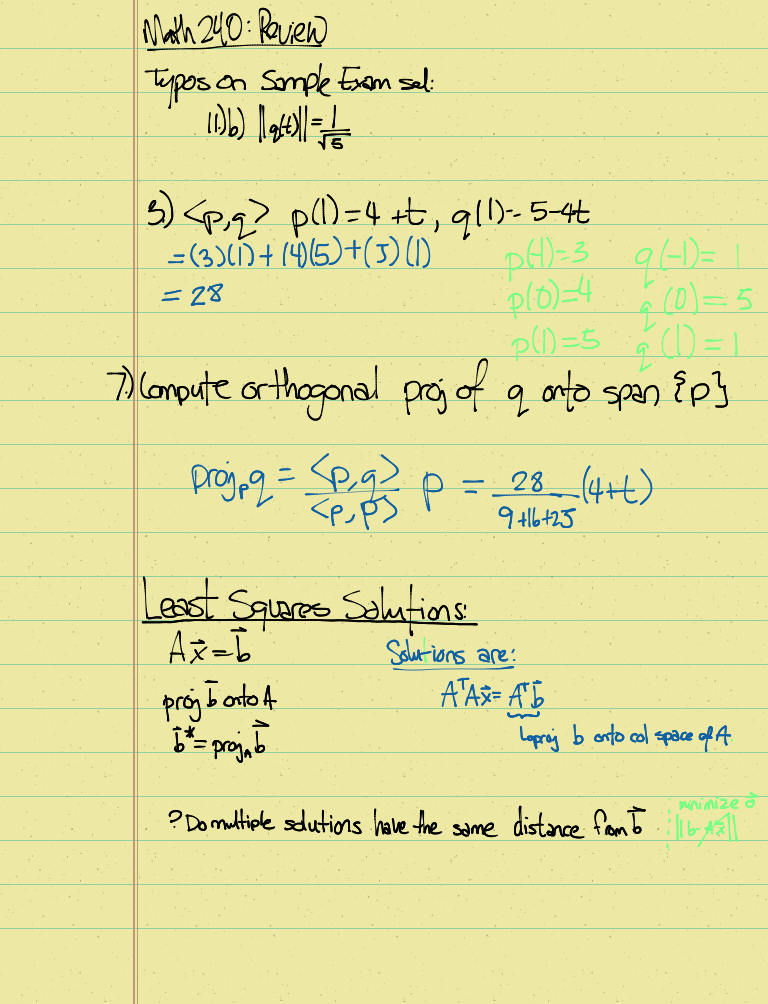 Math 240: Review
Typos on Sample Exam sol:
11)b) ||q(t)|| = 1/√5
3) <p,q> p(1)=4+t, q(1)=5-4t
=(3)(1)+(4)(5)+(5)(1)
=28
p(-1)=3 q(-1)=1
p(0)=4 q(0)=5
p(1)=5 q(1)=1
7.) Compute orthogonal proj of q onto span {p}
proj_p q = <p,q>/<p,p> p = 28/(9+16+25) (4+t)
Least Squares Solutions:
Ax⃗=b⃗
proj b⃗ onto A
b⃗*=proj_A b⃗
Solutions are:
AᵀAx⃗=Aᵀb⃗
↳proj b onto col space of A
? Do multiple solutions have the same distance from b⃗
minimize
||b-Ax⃗||